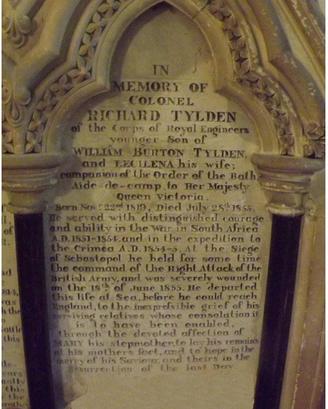 IN
MEMORY OF
COLONEL
RICHARD TYLDEN
of the Corps of Royal Engineers
younger Son of
WILLIAM BURTON TYLDEN,
and LECILENA his wife:
companion of the Order of the Bath
Aide-de-camp to Her Majesty
Queen Victoria.
Born Nov. 22nd 1819, Died July 28th 1855.
He served with distinguished courage
and ability in the War in South Africa
A.D. 1851-1854, and in the expedition to
the Crimea A.D. 1854-5. At the Siege
of Sebastopol he held for some time
the command of the Right Attack of the
British Army, and was severely wounded
on the 18th of June 1855. He departed
this life at Sea, before he could reach
England, to the inexpressible grief of his
surviving relatives whose consolation it
is to have been enabled,
through the devoted affection of
MARY his stepmother, to lay his remains
at his mothers feet, and to hope in the
mercy of his Saviour, and theirs in the
Resurrection of the last Day